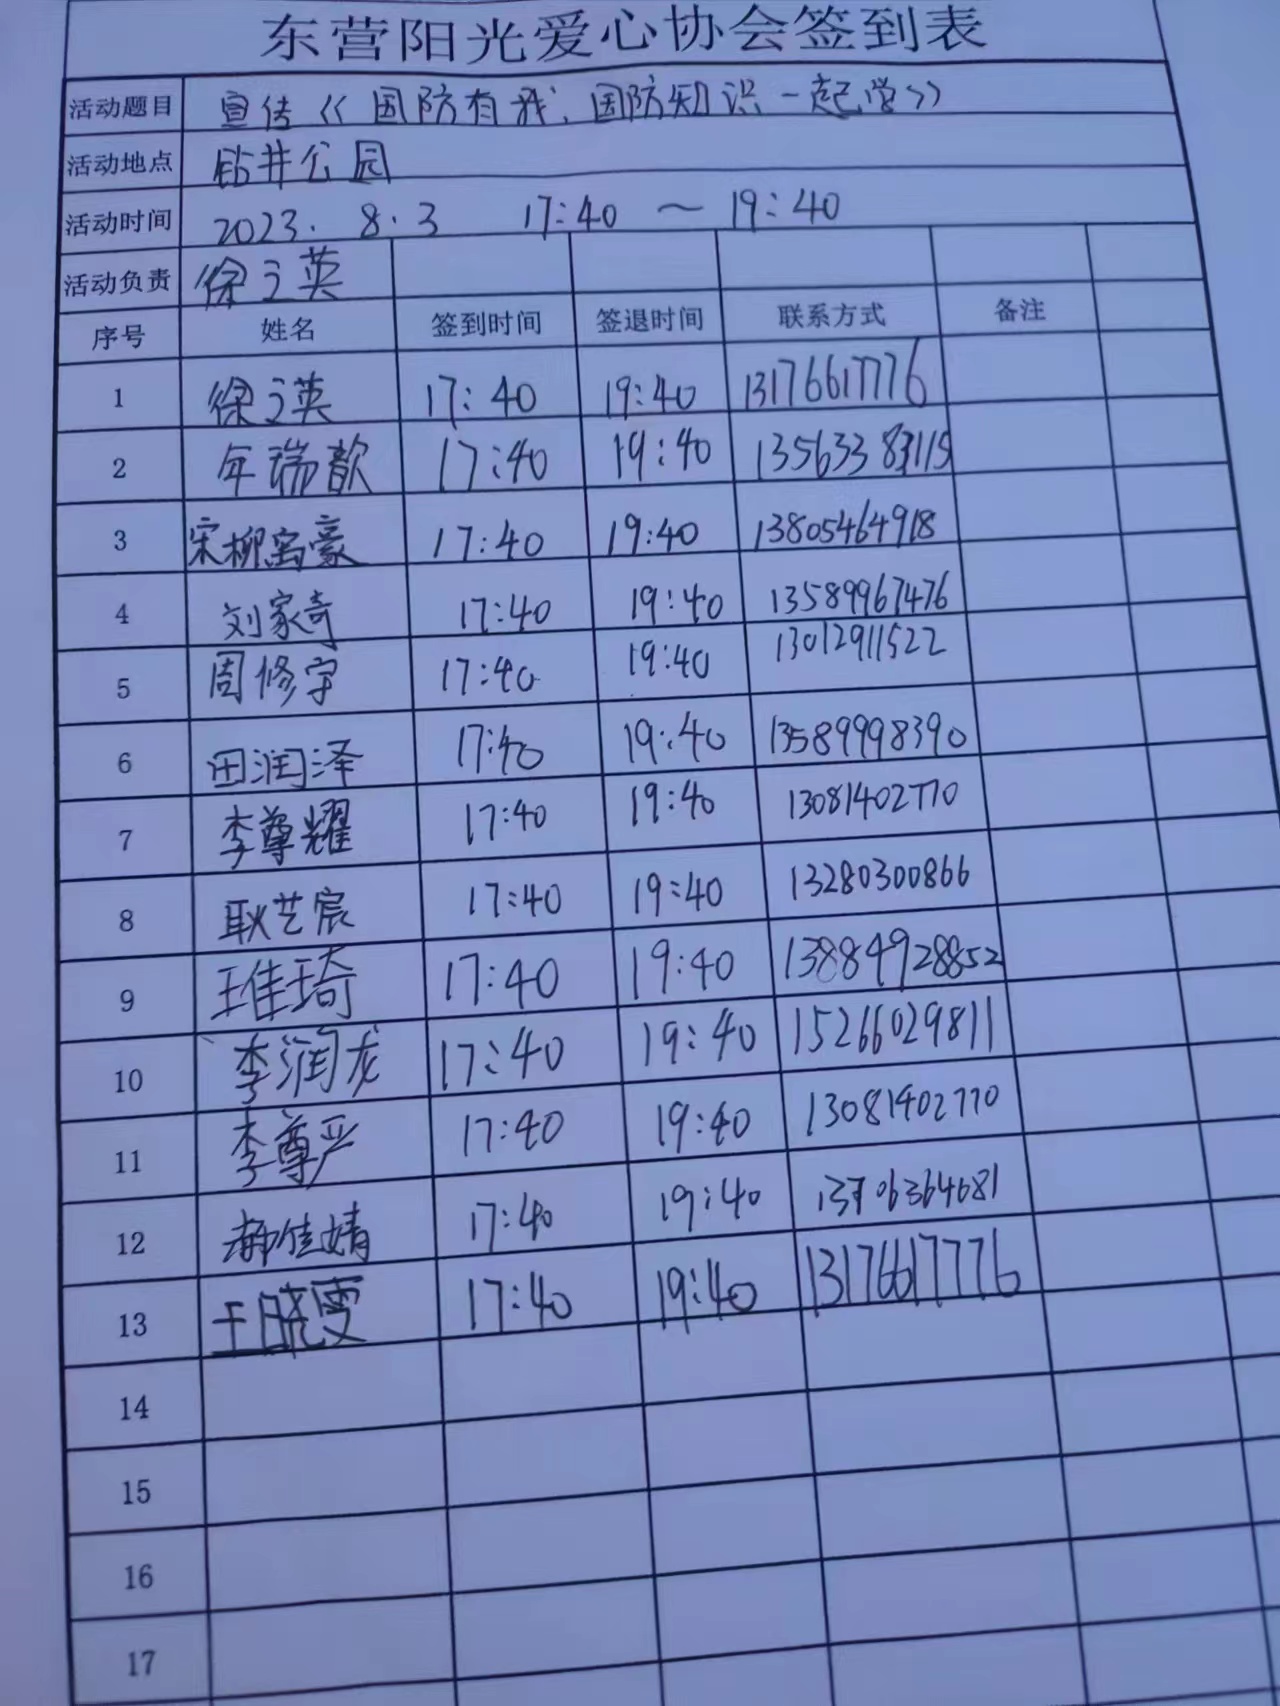 东营阳光爱心协会签到表
活动题目 宣传《国防有我、国防知识一起学》
活动地点 钻井公园
活动时间 2023.8.3 17:40～19:40
活动负责 徐立英
序号 姓名 签到时间 签退时间 联系方式 备注
1 徐立英 17:40 19:40 13176617776
2 年瑞歆 17:40 19:40
3 宋柳 豪 17:40 19:40 13805464918
4 刘家奇 17:40 19:40 13589967476
5 周修宇 17:40 19:40 13012911522
6 田润泽 17:40 19:40 13589998390
7 李尊耀 17:40 19:40 13081402770
8 耿艺宸 17:40 19:40 13280300866
9 王佳琦 17:40 19:40 13884928852
10 李润龙 17:40 19:40 15266029811
11 李尊严 17:40 19:40 13081402770
12 郝佳婧 17:40 19:40
13 王晓雯 17:40 19:40 13176617776
14
15
16
17